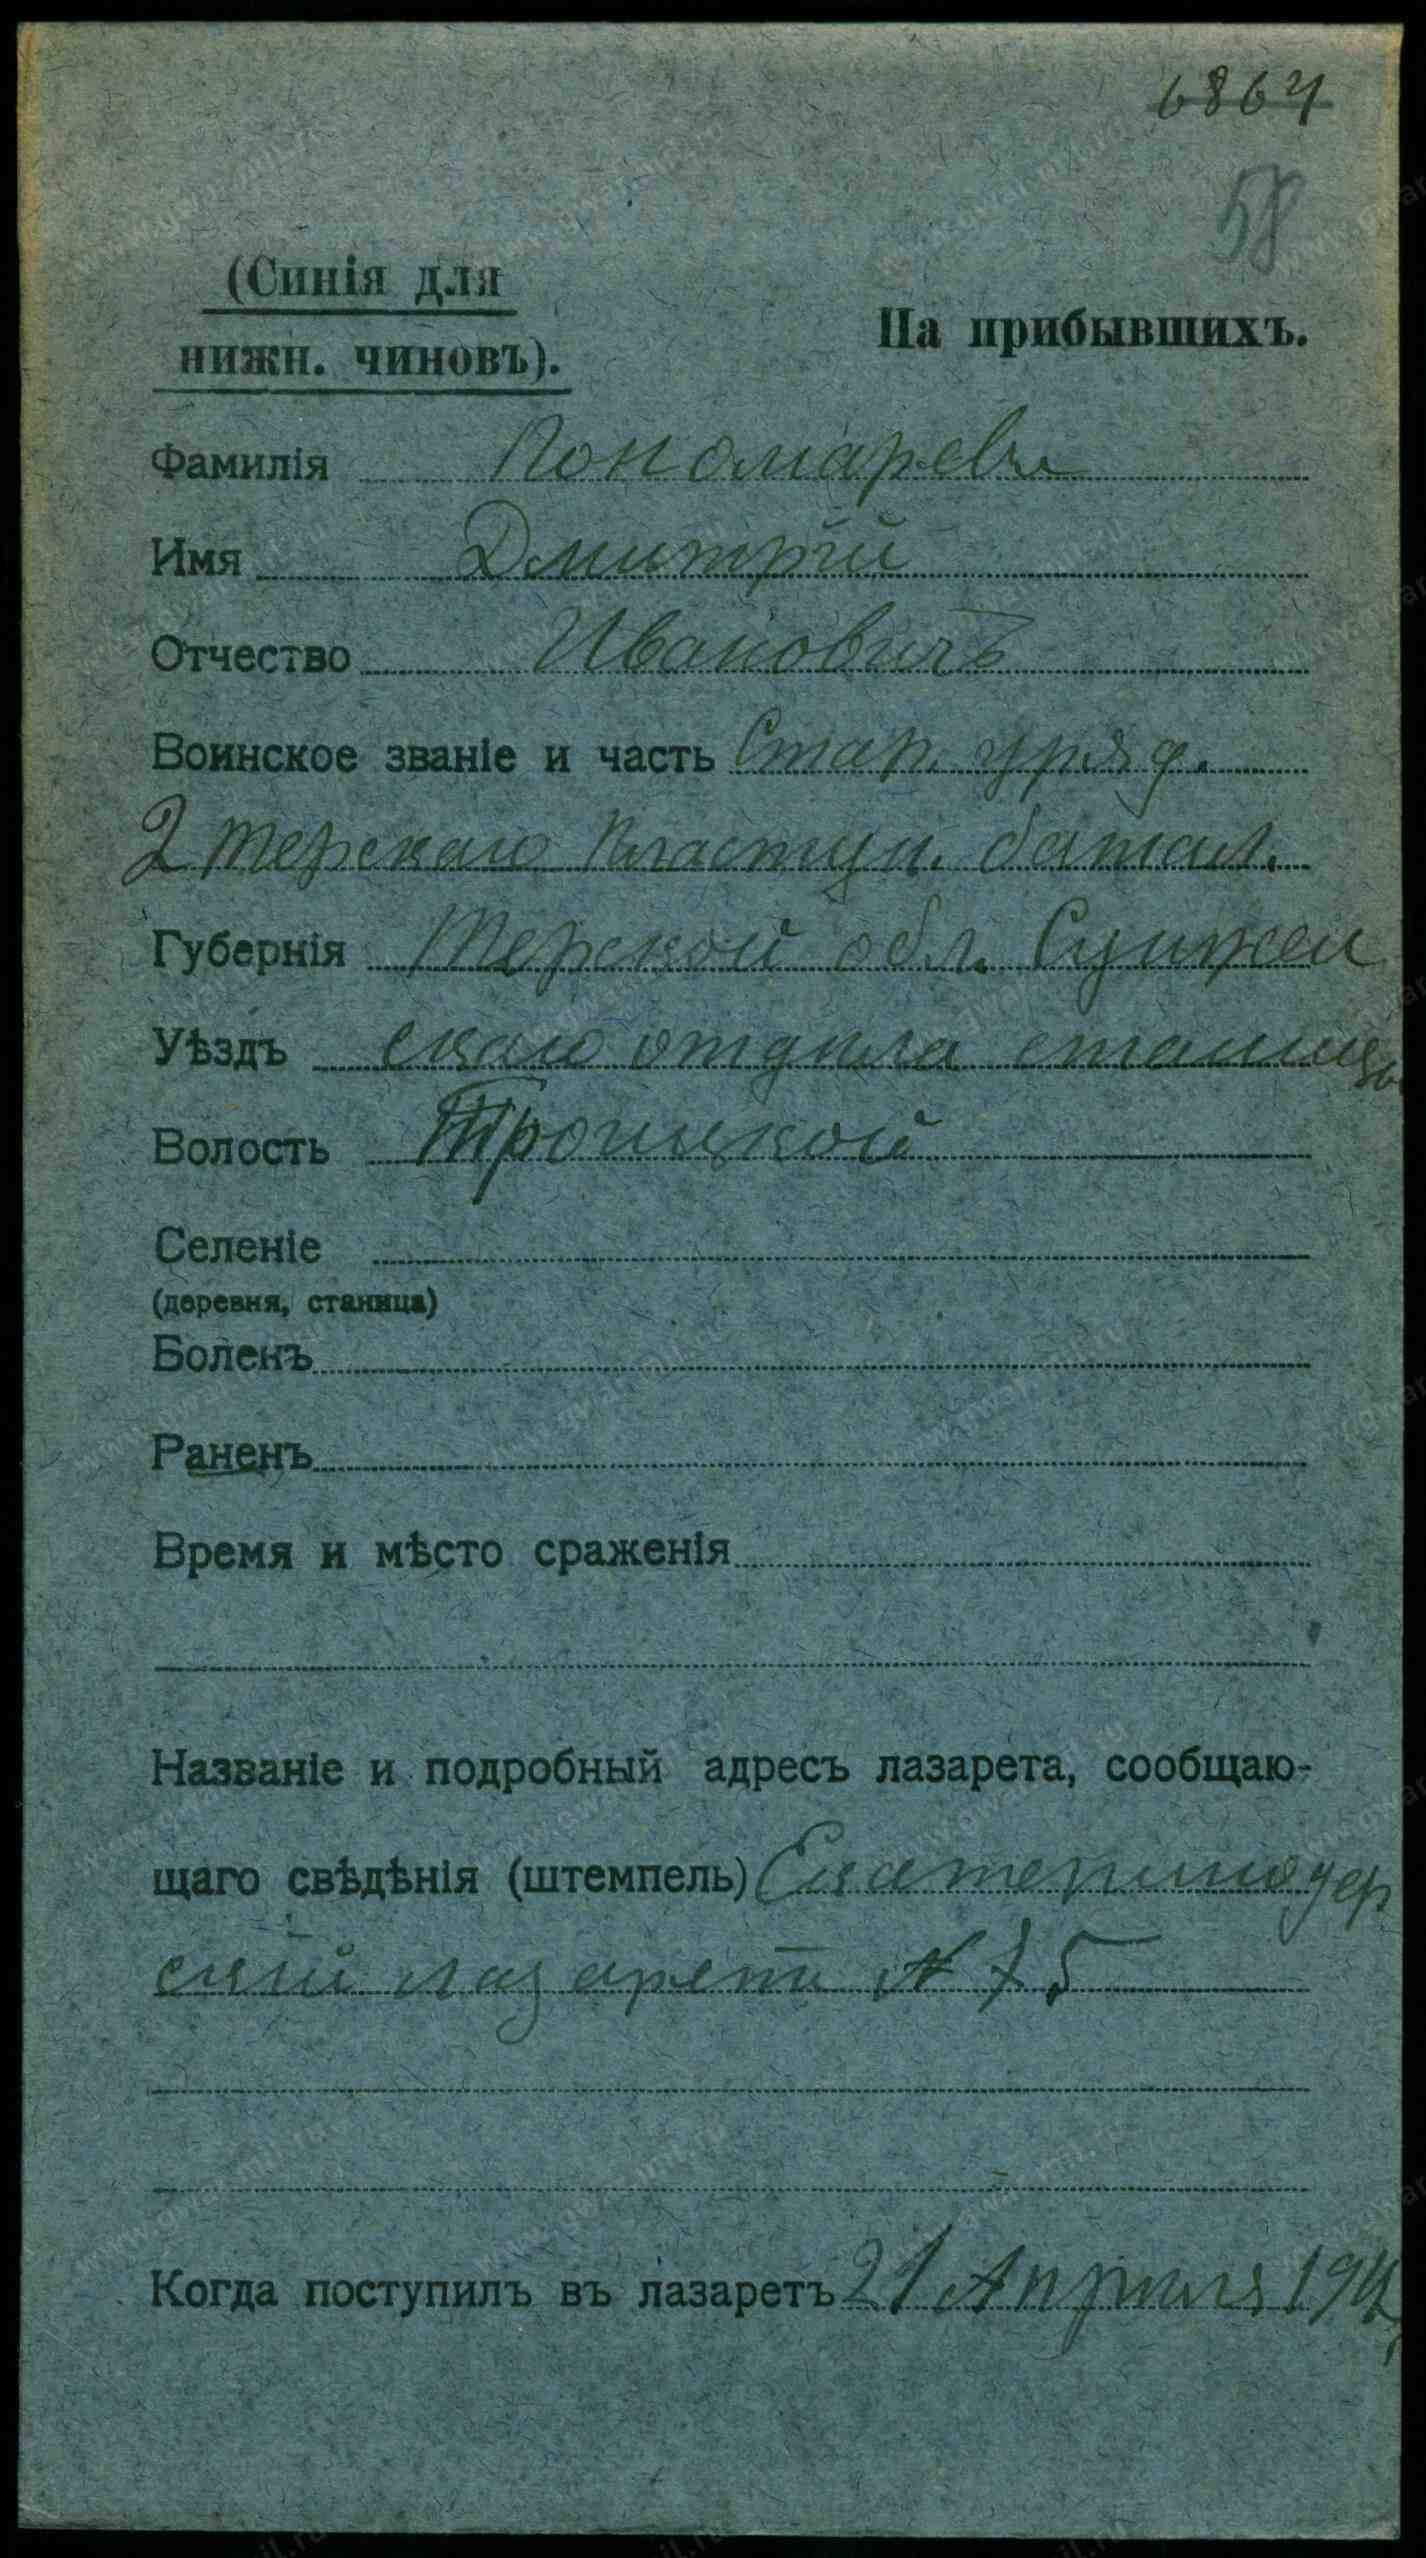 6864
58
(Синія для
нижн. чиновъ).
На прибывшихъ.
Фамилія Пономаревъ
Имя Дмитрій
Отчество Ивановичъ
Воинское званіе и часть Стар. уряд.
2 Терскаго Пластун. батал.
Губернія Терской обл. Сунжен
Уѣздъ скаго отдѣла станицы
Волость Троицкой
Селеніе
(деревня, станица)
Боленъ
Раненъ
Время и мѣсто сраженія
Названіе и подробный адресъ лазарета, сообщаю-
щаго свѣдѣнія (штемпель) Екатеринодар
скій лазаретъ № 15
Когда поступилъ въ лазаретъ 21 Апрѣля